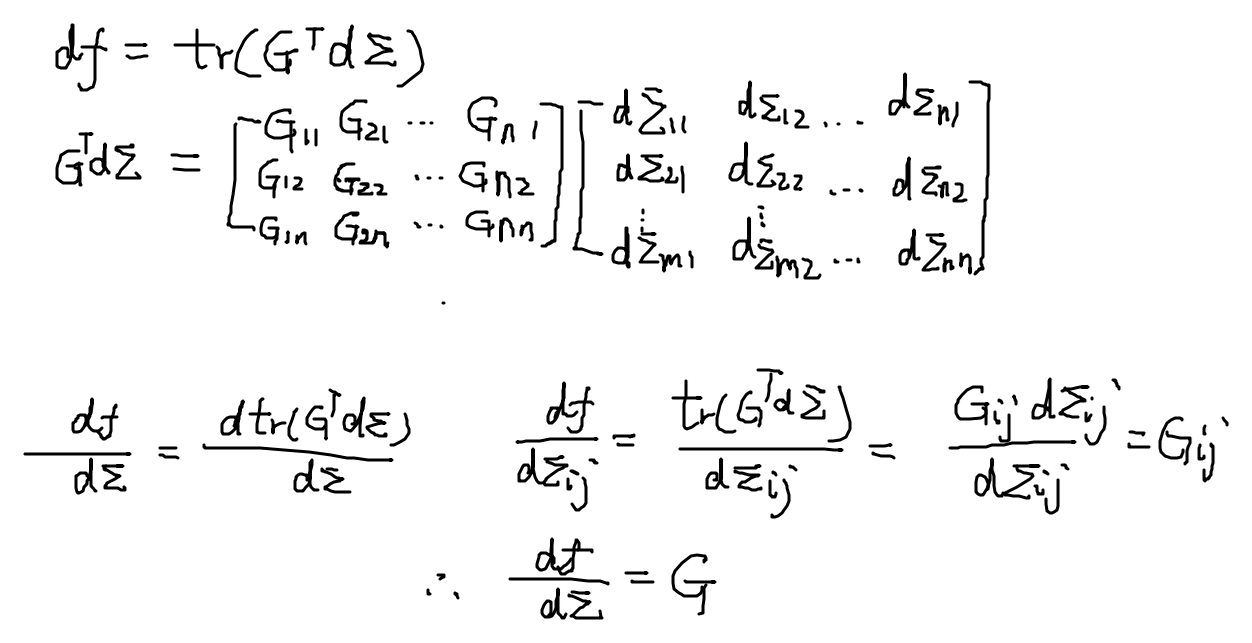 df = tr(GᵀdΣ)
GᵀdΣ = [G₁₁ G₂₁ ... Gₙ₁] [dΣ₁₁ dΣ₁₂ ... dΣₙ₁]
[G₁₂ G₂₂ ... Gₙ₂] [dΣ₂₁ dΣ₂₂ ... dΣₙ₂]
[G₁ₙ G₂ₙ ... Gₙₙ] [⋮ dΣₘ₁ ⋮ dΣₘ₂ ... dΣₙₙ]
df/dΣ = dtr(GᵀdΣ)/dΣ df/dΣᵢⱼ = tr(GᵀdΣ)/dΣᵢⱼ = Gᵢⱼ dΣᵢⱼ/dΣᵢⱼ = Gᵢⱼ
∴ df/dΣ = G